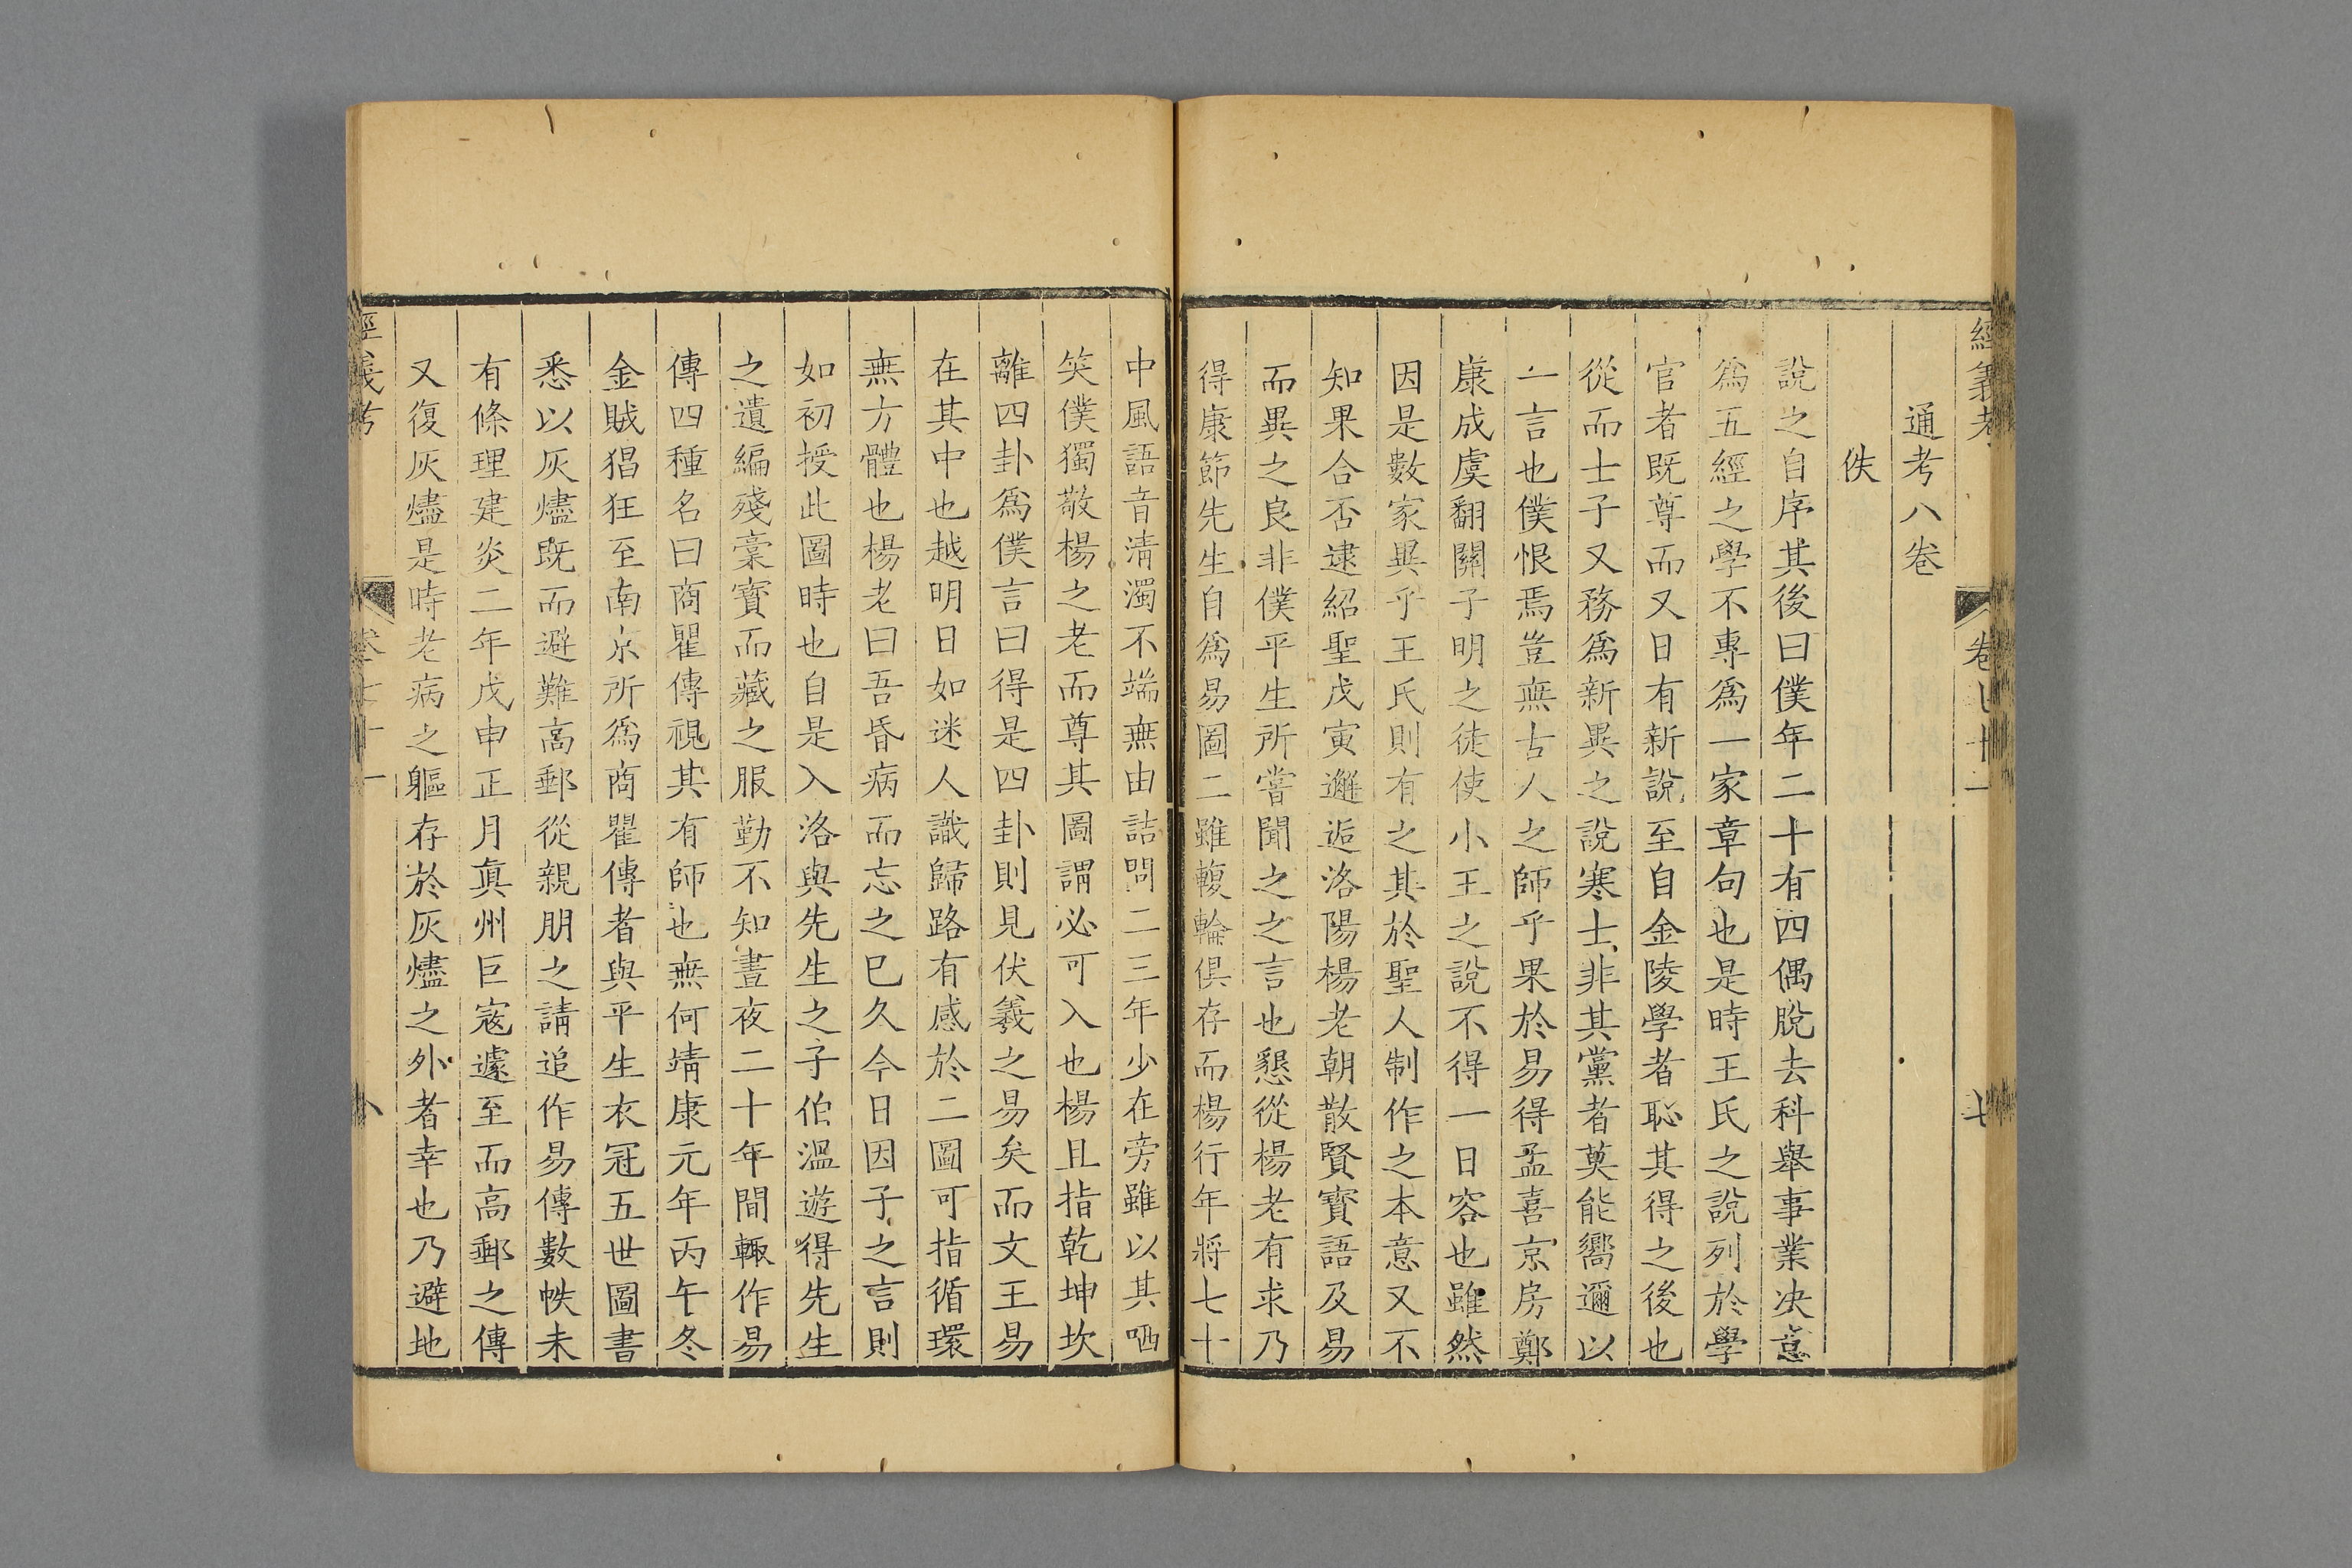 經義考 卷七十一 七
通考八卷
佚
說之自序其後曰僕年二十有四偶脫去科舉事業决意
爲五經之學不專爲一家章句也是時王氏之說列於學
官者既尊而又日有新說至自金陵學者恥其得之後也
從而士子又務爲新異之說寒士非其黨者莫能嚮邇以
一言也僕恨焉豈無古人之師乎果於易得孟喜京房鄭
康成虞翻關子明之徒使小王之說不得一日容也雖然
因是數家異乎王氏則有之其於聖人制作之本意又不
知果合否逮紹聖戊寅邂逅洛陽楊老朝散賢寳語及易
而異之良非僕平生所嘗聞之之言也懇從楊老有求乃
得康節先生自爲易圖二雖轅輪俱存而楊行年將七十
中風語音清濁不端無由詰問二三年少在旁雖以其哂
笑僕獨敬楊之老而尊其圖謂必可入也楊且指乾坤坎
離四卦爲僕言曰得是四卦則見伏羲之易矣而文王易
在其中也越明日如迷人識歸路有感於二圖可指循環
無方體也楊老曰吾昏病而忘之已久今日因子之言則
如初授此圖時也自是入洛與先生之子伯溫遊得先生
之遺編殘稾寳而藏之服勤不知晝夜二十年間輙作易
傳四種名曰商瞿傳視其有師也無何靖康元年丙午冬
金賊猖狂至南京所爲商瞿傳者與平生衣冠五世圖書
悉以灰燼既而避難高郵從親朋之請追作易傳數帙未
有條理建炎二年戊申正月眞州巨寇遽至而高郵之傳
又復灰燼是時老病之軀存於灰燼之外者幸也乃避地
經義考 卷七十一 八